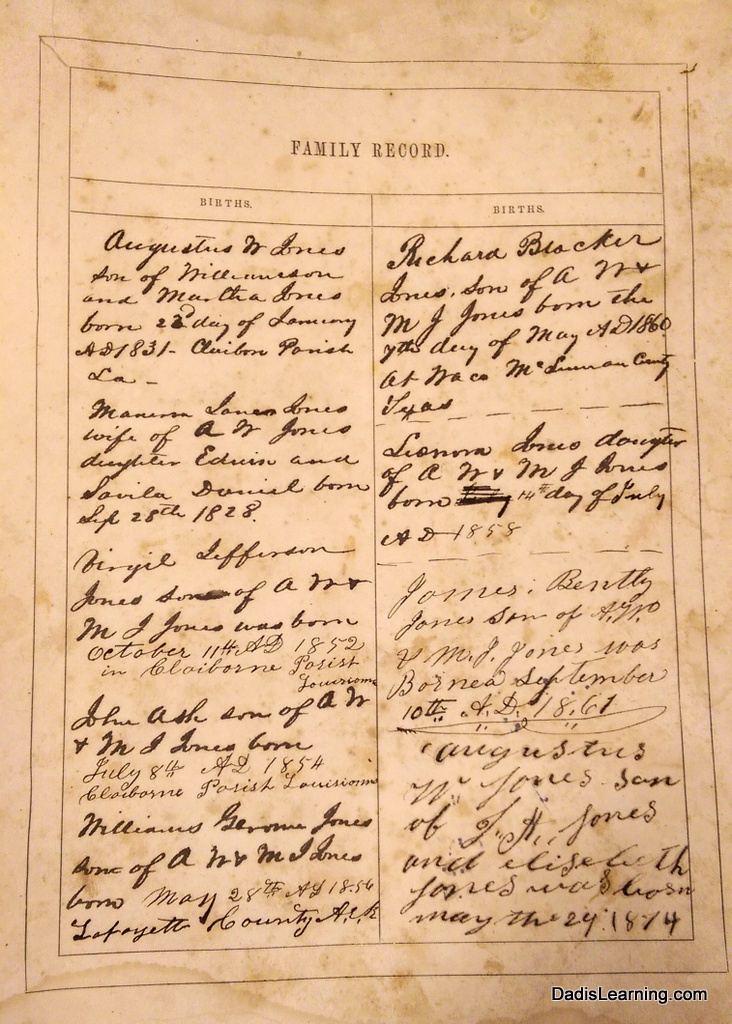 FAMILY RECORD.
BIRTHS.
Augustus W Jones
son of Williamson
and Martha Jones
born 23d day of January
AD 1831 - Claibon Parish
La -
Jane Jones
wife of A W Jones
daughter Edwin and
Savila Daniel born
Sep 28th 1828.
Virgil Jefferson
Jones son of A W &
M J Jones was born
October 11th AD 1852
in Claiborne Parish
Louisiana
John Ash son of A W
& M J Jones born
July 8th AD 1854
Claiborne Parish Louisiana
William Gerome Jones
son of A W & M J Jones
born May 28th AD 1856
Lafayett County Ark
BIRTHS.
Richard Blocker
Jones, son of A W &
M J Jones born the
7th day of May AD 1860
At Waco McLennan County
Texas
Leonora Jones daugter
of A W & M J Jones
born 14th day of July
AD 1858
James. Bently
Jones Son of A.W.
& M.J. Jones was
Bornea September
10th A.D. 1861
augustus
W Jones son
of J. A. Jones
and elisebeth
Jones was born
may the 29 1874
DadisLearning.com